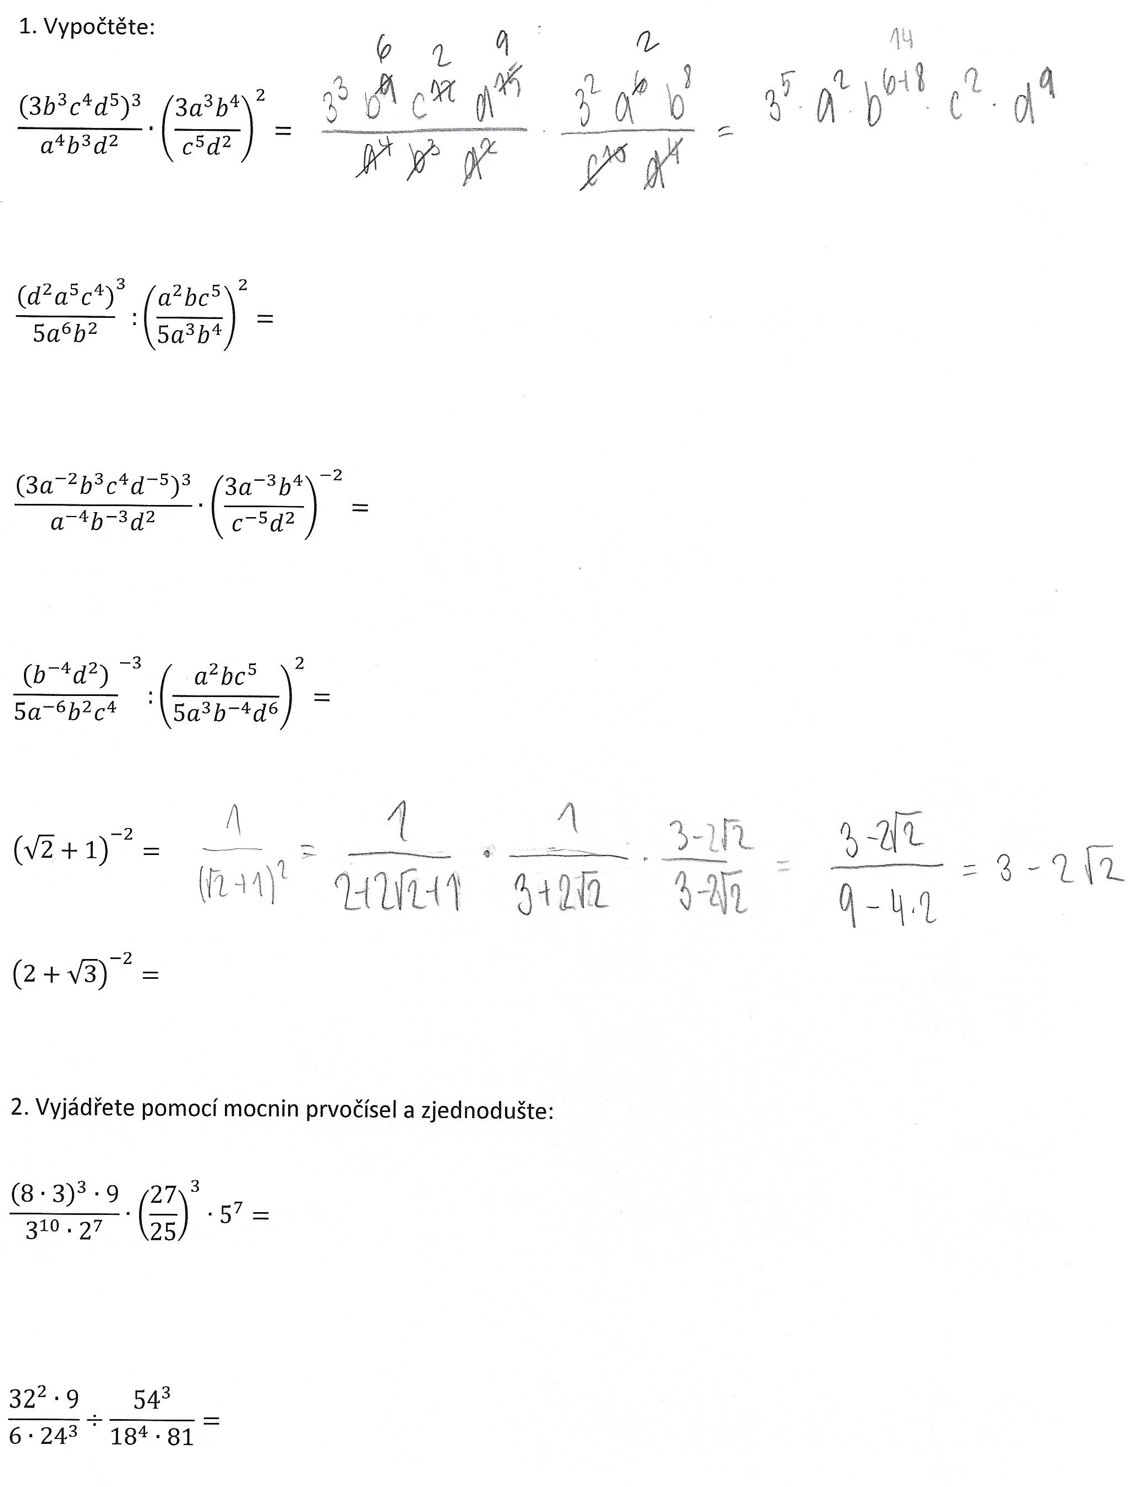 1. Vypočtěte:
\frac{(3b^3c^4d^5)^3}{a^4b^3d^2} \cdot \left(\frac{3a^3b^4}{c^5d^2}\right)^2 = \frac{3^3 b^{\cancel{9} 6} c^{\cancel{12} 2} d^{\cancel{15} 9}}{\cancel{a^4} \cancel{b^3} \cancel{d^2}} \cdot \frac{3^2 a^{\cancel{6} 2} b^8}{\cancel{c^{10}} \cancel{d^4}} = 3^5 \cdot a^2 \cdot b^{6+8} \cdot c^2 \cdot d^9
14
\frac{(d^2a^5c^4)^3}{5a^6b^2} : \left(\frac{a^2bc^5}{5a^3b^4}\right)^2 =
\frac{(3a^{-2}b^3c^4d^{-5})^3}{a^{-4}b^{-3}d^2} \cdot \left(\frac{3a^{-3}b^4}{c^{-5}d^2}\right)^{-2} =
\frac{(b^{-4}d^2)^{-3}}{5a^{-6}b^2c^4} : \left(\frac{a^2bc^5}{5a^3b^{-4}d^6}\right)^2 =
(\sqrt{2}+1)^{-2} = \frac{1}{(\sqrt{2}+1)^2} = \frac{1}{2+2\sqrt{2}+1} \cdot \frac{1}{3+2\sqrt{2}} \cdot \frac{3-2\sqrt{2}}{3-2\sqrt{2}} = \frac{3-2\sqrt{2}}{9-4\cdot2} = 3-2\sqrt{2}
(2+\sqrt{3})^{-2} =
2. Vyjádřete pomocí mocnin prvočísel a zjednodušte:
\frac{(8 \cdot 3)^3 \cdot 9}{3^{10} \cdot 2^7} \cdot \left(\frac{27}{25}\right)^3 \cdot 5^7 =
\frac{32^2 \cdot 9}{6 \cdot 24^3} \div \frac{54^3}{18^4 \cdot 81} =